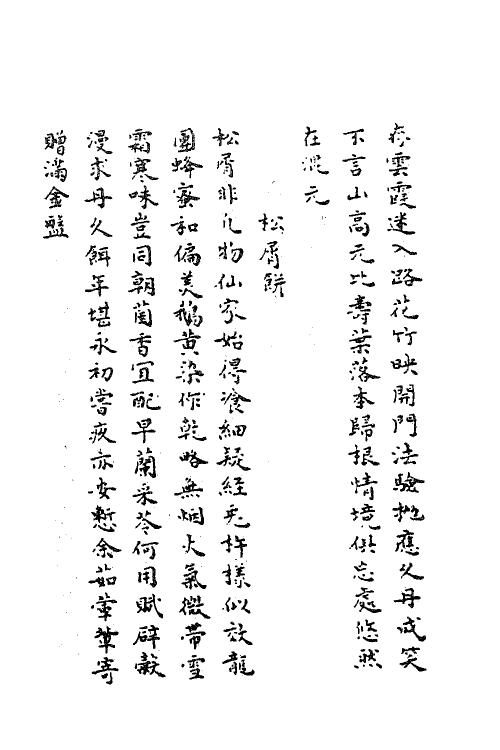 存雲霞迷入路花竹映開門法驗枕應久丹成笑
不言山高元比壽葉落本歸根情境俱忘處悠然
在混元
松屑餅
松屑非凡物仙家始得飡細疑經兎杵樣似放龍
團蜂蜜和偏美鵝黃染作乾略無烟火氣微帶雪
霜寒味豈同朝菌香宜配早蘭采苓何用賦辟穀
漫求丹久餌年堪永初嘗疾亦安慙余茹葷輩寄
贈滿金盤